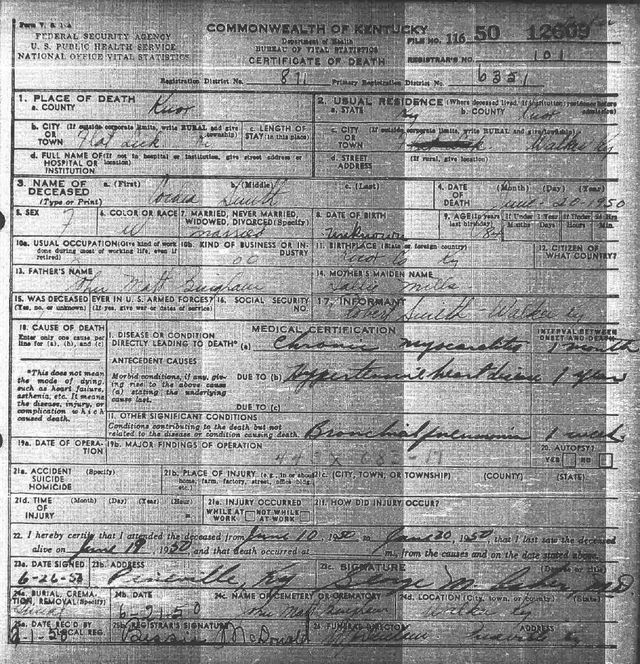 Form V. S. 1-A
FEDERAL SECURITY AGENCY
U. S. PUBLIC HEALTH SERVICE
NATIONAL OFFICE VITAL STATISTICS
COMMONWEALTH OF KENTUCKY
Department of Health
BUREAU OF VITAL STATISTICS
CERTIFICATE OF DEATH
FILE NO. 116 50 12609
REGISTRAR'S NO. 101
Registration District No. 871 Primary Registration District No. 6351
1. PLACE OF DEATH
a. COUNTY Knox
2. USUAL RESIDENCE (Where deceased lived. If institution: residence before admission)
a. STATE Ky b. COUNTY Knox
b. CITY (If outside corporate limits, write RURAL and give township)
OR TOWN Flat Lick
c. LENGTH OF STAY (in this place)
c. CITY (If outside corporate limits, write RURAL and give township)
OR TOWN Walker Ky
d. FULL NAME OF (If not in hospital or institution, give street address or location)
HOSPITAL OR INSTITUTION
d. STREET ADDRESS (If rural, give location)
3. NAME OF DECEASED (Type or Print)
a. (First) b. (Middle) c. (Last)
Smith
4. DATE OF DEATH (Month) (Day) (Year)
June 20-1950
5. SEX F
6. COLOR OR RACE W
7. MARRIED, NEVER MARRIED, WIDOWED, DIVORCED (Specify) married
8. DATE OF BIRTH unknown
9. AGE (In years last birthday) If Under 1 Year Months Days If Under 24 Hrs. Hours Min.
10a. USUAL OCCUPATION (Give kind of work done during most of working life, even if retired)
10b. KIND OF BUSINESS OR INDUSTRY
11. BIRTHPLACE (State or foreign country) Knox Co Ky
12. CITIZEN OF WHAT COUNTRY?
13. FATHER'S NAME John Matt Bingham
14. MOTHER'S MAIDEN NAME Mills
15. WAS DECEASED EVER IN U. S. ARMED FORCES? (Yes, no, or unknown) (If yes, give war or dates of service)
16. SOCIAL SECURITY NO.
17. INFORMANT Robert Smith - Walker Ky
18. CAUSE OF DEATH
Enter only one cause per line for (a), (b), and (c)
*This does not mean the mode of dying, such as heart failure, asthenia, etc. It means the disease, injury, or complication which caused death.
MEDICAL CERTIFICATION
INTERVAL BETWEEN ONSET AND DEATH
I. DISEASE OR CONDITION DIRECTLY LEADING TO DEATH* (a) Chronic myocarditis 1 month
ANTECEDENT CAUSES
Morbid conditions, if any, giving rise to the above cause (a) stating the underlying cause last.
DUE TO (b) Hypertensive heart disease 1 year
DUE TO (c)
II. OTHER SIGNIFICANT CONDITIONS
Conditions contributing to the death but not related to the disease or condition causing death. Bronchial pneumonia 1 week
19a. DATE OF OPERATION
19b. MAJOR FINDINGS OF OPERATION
20. AUTOPSY? YES NO
21a. ACCIDENT SUICIDE HOMICIDE (Specify)
21b. PLACE OF INJURY (e.g., in or about home, farm, factory, street, office bldg., etc.)
21c. (CITY, TOWN, OR TOWNSHIP) (COUNTY) (STATE)
21d. TIME OF INJURY (Month) (Day) (Year) (Hour)
21e. INJURY OCCURRED WHILE AT WORK NOT WHILE AT WORK
21f. HOW DID INJURY OCCUR?
22. I hereby certify that I attended the deceased from June 10, 1950 to June 20, 1950, that I last saw the deceased
alive on June 19, 1950 and that death occurred at m., from the causes and on the date stated above.
23a. DATE SIGNED 6-26-50
23b. ADDRESS Pineville, Ky
23c. SIGNATURE (Degree or title) George M. Asher, MD
24a. BURIAL, CREMATION, REMOVAL (Specify)
24b. DATE 6-21-50
24c. NAME OF CEMETERY OR CREMATORY John Matt Bingham
24d. LOCATION (City, town, or county) (State) Walker Ky
25a. DATE REC'D BY LOCAL REG.
25b. REGISTRAR'S SIGNATURE Bessie McDonald
26. FUNERAL DIRECTOR ADDRESS
Pineville Ky